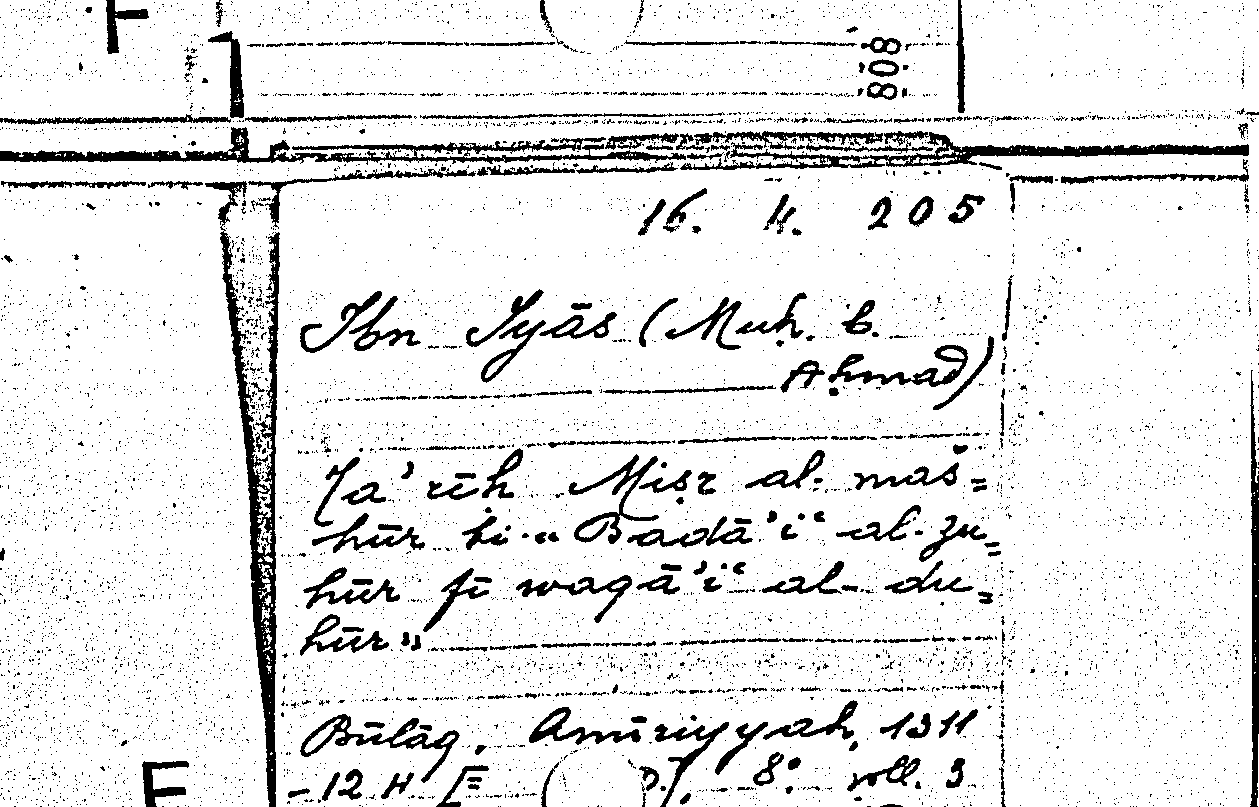 F
808
16. 4. 205
Ibn Iyās (Muḥ. b.
Aḥmad)
Ta'rīḫ Miṣr al-maš=
hūr bi-« Badā'i‘ al-zu=
hūr fī waqā'i‘ al-du=
hūr»
Būlāq, Amīriyyah, 1311
-12 H [=
8°. voll. 3
E